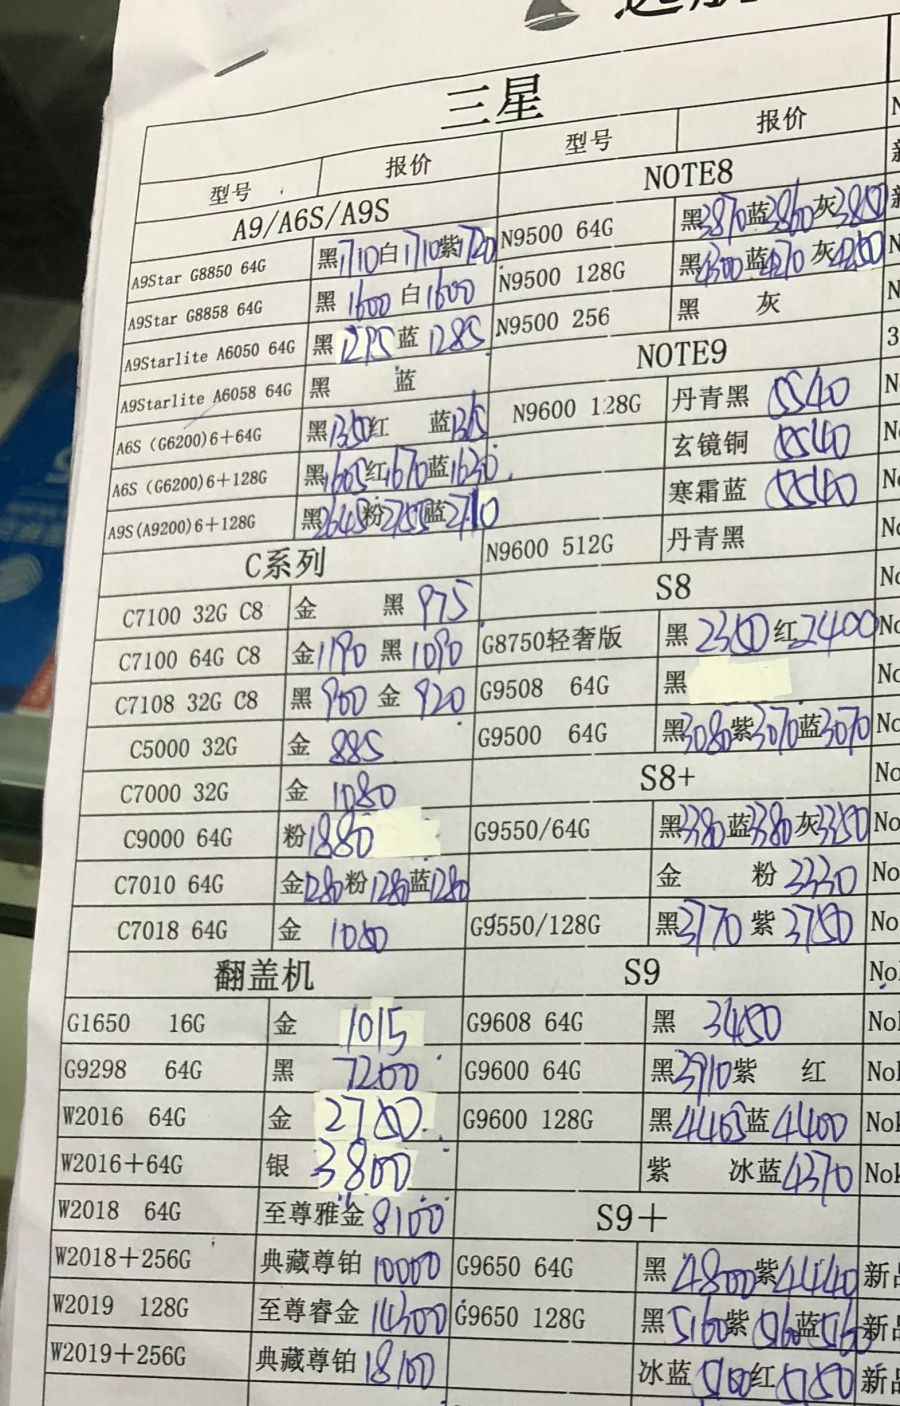 三星
型号 报价 型号 报价
A9/A6S/A9S
A9Star G8850 64G 黑1710白1710紫1720
A9Star G8858 64G 黑 1600 白1600
A9Starlite A6050 64G 黑 1275 蓝 1285
A9Starlite A6058 64G 黑 蓝
A6S (G6200)6+64G 黑1350红 蓝1365
A6S (G6200)6+128G 黑1665红1670蓝1630
A9S(A9200)6+128G 黑2645粉2755蓝2710
C系列
C7100 32G C8 金 黑 975
C7100 64G C8 金1190 黑 1090
C7108 32G C8 黑 900 金 920
C5000 32G 金 885
C7000 32G 金 1080
C9000 64G 粉1880
C7010 64G 金1280粉1280蓝1280
C7018 64G 金 1080
翻盖机
G1650 16G 金 1015
G9298 64G 黑 7200
W2016 64G 金 2780
W2016+64G 银 3800
W2018 64G 至尊雅金 8100
W2018+256G 典藏尊铂 10000
W2019 128G 至尊睿金 14300
W2019+256G 典藏尊铂 18100
NOTE8
N9500 64G 黑3870蓝3860灰3850
N9500 128G 黑4300蓝4270灰4260
N9500 256 黑 灰
NOTE9
N9600 128G 丹青黑 5540
玄镜铜 5540
寒霜蓝 5540
N9600 512G 丹青黑
S8
G8750轻奢版 黑 2350 红2400
G9508 64G 黑
G9500 64G 黑3080紫3070蓝3070
S8+
G9550/64G 黑3380蓝3380灰3350
金 粉 3330
G9550/128G 黑3770 紫 3750
S9
G9608 64G 黑 3450
G9600 64G 黑3910紫 红
G9600 128G 黑4465蓝4400
紫 冰蓝4370
S9+
G9650 64G 黑 4800紫4440
G9650 128G 黑5160紫5160蓝5160
冰蓝5100红5150